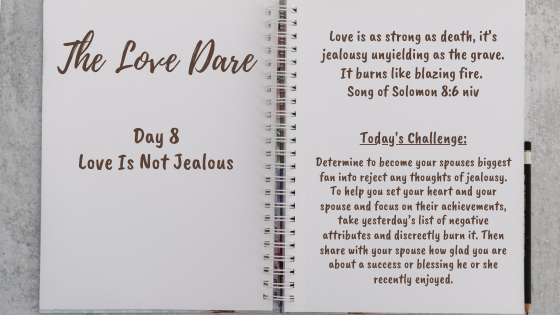 The Love Dare
Day 8
Love Is Not Jealous
Love is as strong as death, it's
jealousy unyielding as the grave.
It burns like blazing fire.
Song of Solomon 8:6 niv
Today's Challenge:
Determine to become your spouses biggest
fan into reject any thoughts of jealousy.
To help you set your heart and your
spouse and focus on their achievements,
take yesterday's list of negative
attributes and discreetly burn it. Then
share with your spouse how glad you are
about a success or blessing he or she
recently enjoyed.